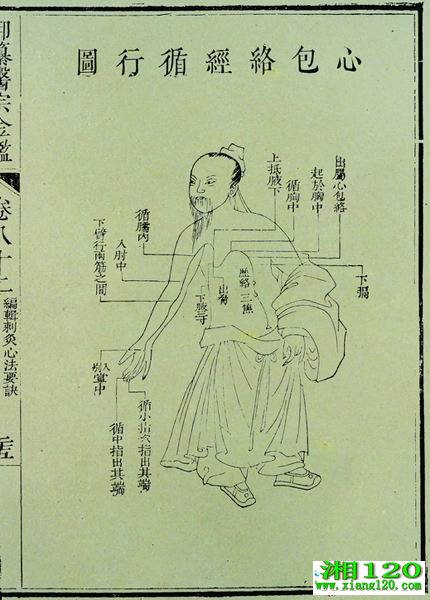 心包絡經循行圖
出屬心包絡
起於胸中
循胸中
上抵腋下
下膈
歷絡三焦
出脅
下腋三寸
循臑內
入肘中
下臂行兩筋之間
入掌中
循小指次指出其端
循中指出其端
御纂醫宗金鑑
卷八十二
編輯刺灸心法要訣
湘120
www.xiang120.com